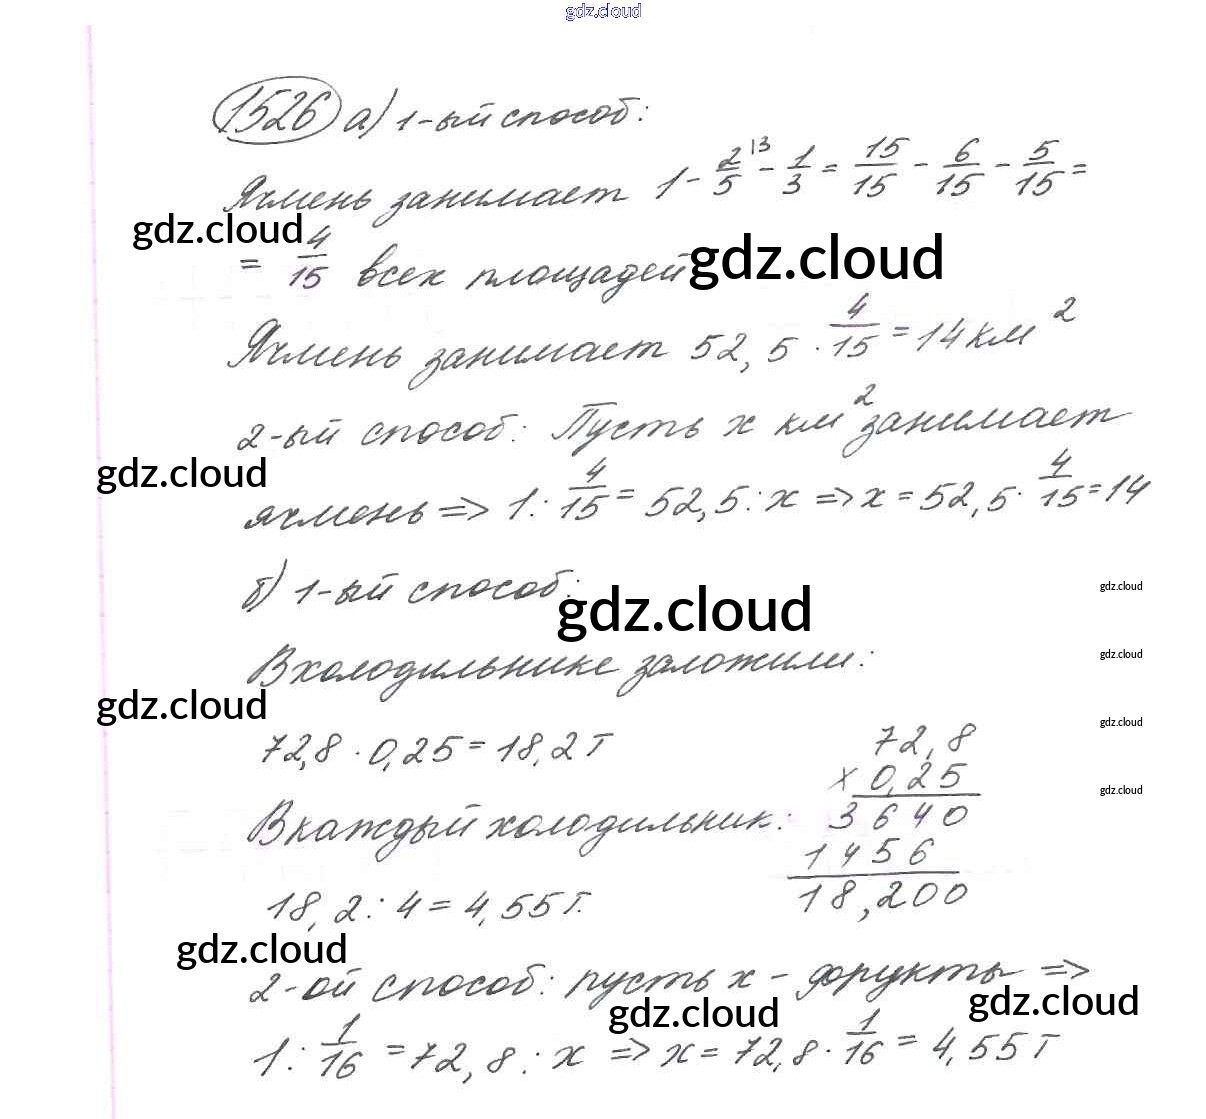 gdz.cloud
1526 а) 1-ый способ:
Ячмень занимает 1 - 2/5 \3 - 1/3 = 15/15 - 6/15 - 5/15 =
gdz.cloud
= 4/15 всех площадей gdz.cloud
Ячмень занимает 52,5 · 4/15 = 14 км²
2-ый способ: Пусть x км² занимает
gdz.cloud
ячмень => 1 : 4/15 = 52,5 : x => x = 52,5 · 4/15 = 14
б) 1-ый способ: gdz.cloud
gdz.cloud
В холодильнике заложили: gdz.cloud
gdz.cloud
gdz.cloud
72,8 · 0,25 = 18,2 т
72,8
× 0,25
gdz.cloud
3640
1456
18,200
В каждый холодильник:
18,2 : 4 = 4,55 т.
gdz.cloud
2-ой способ: пусть x - фрукты =>
gdz.cloud gdz.cloud
1 : 1/16 = 72,8 : x => x = 72,8 · 1/16 = 4,55 т